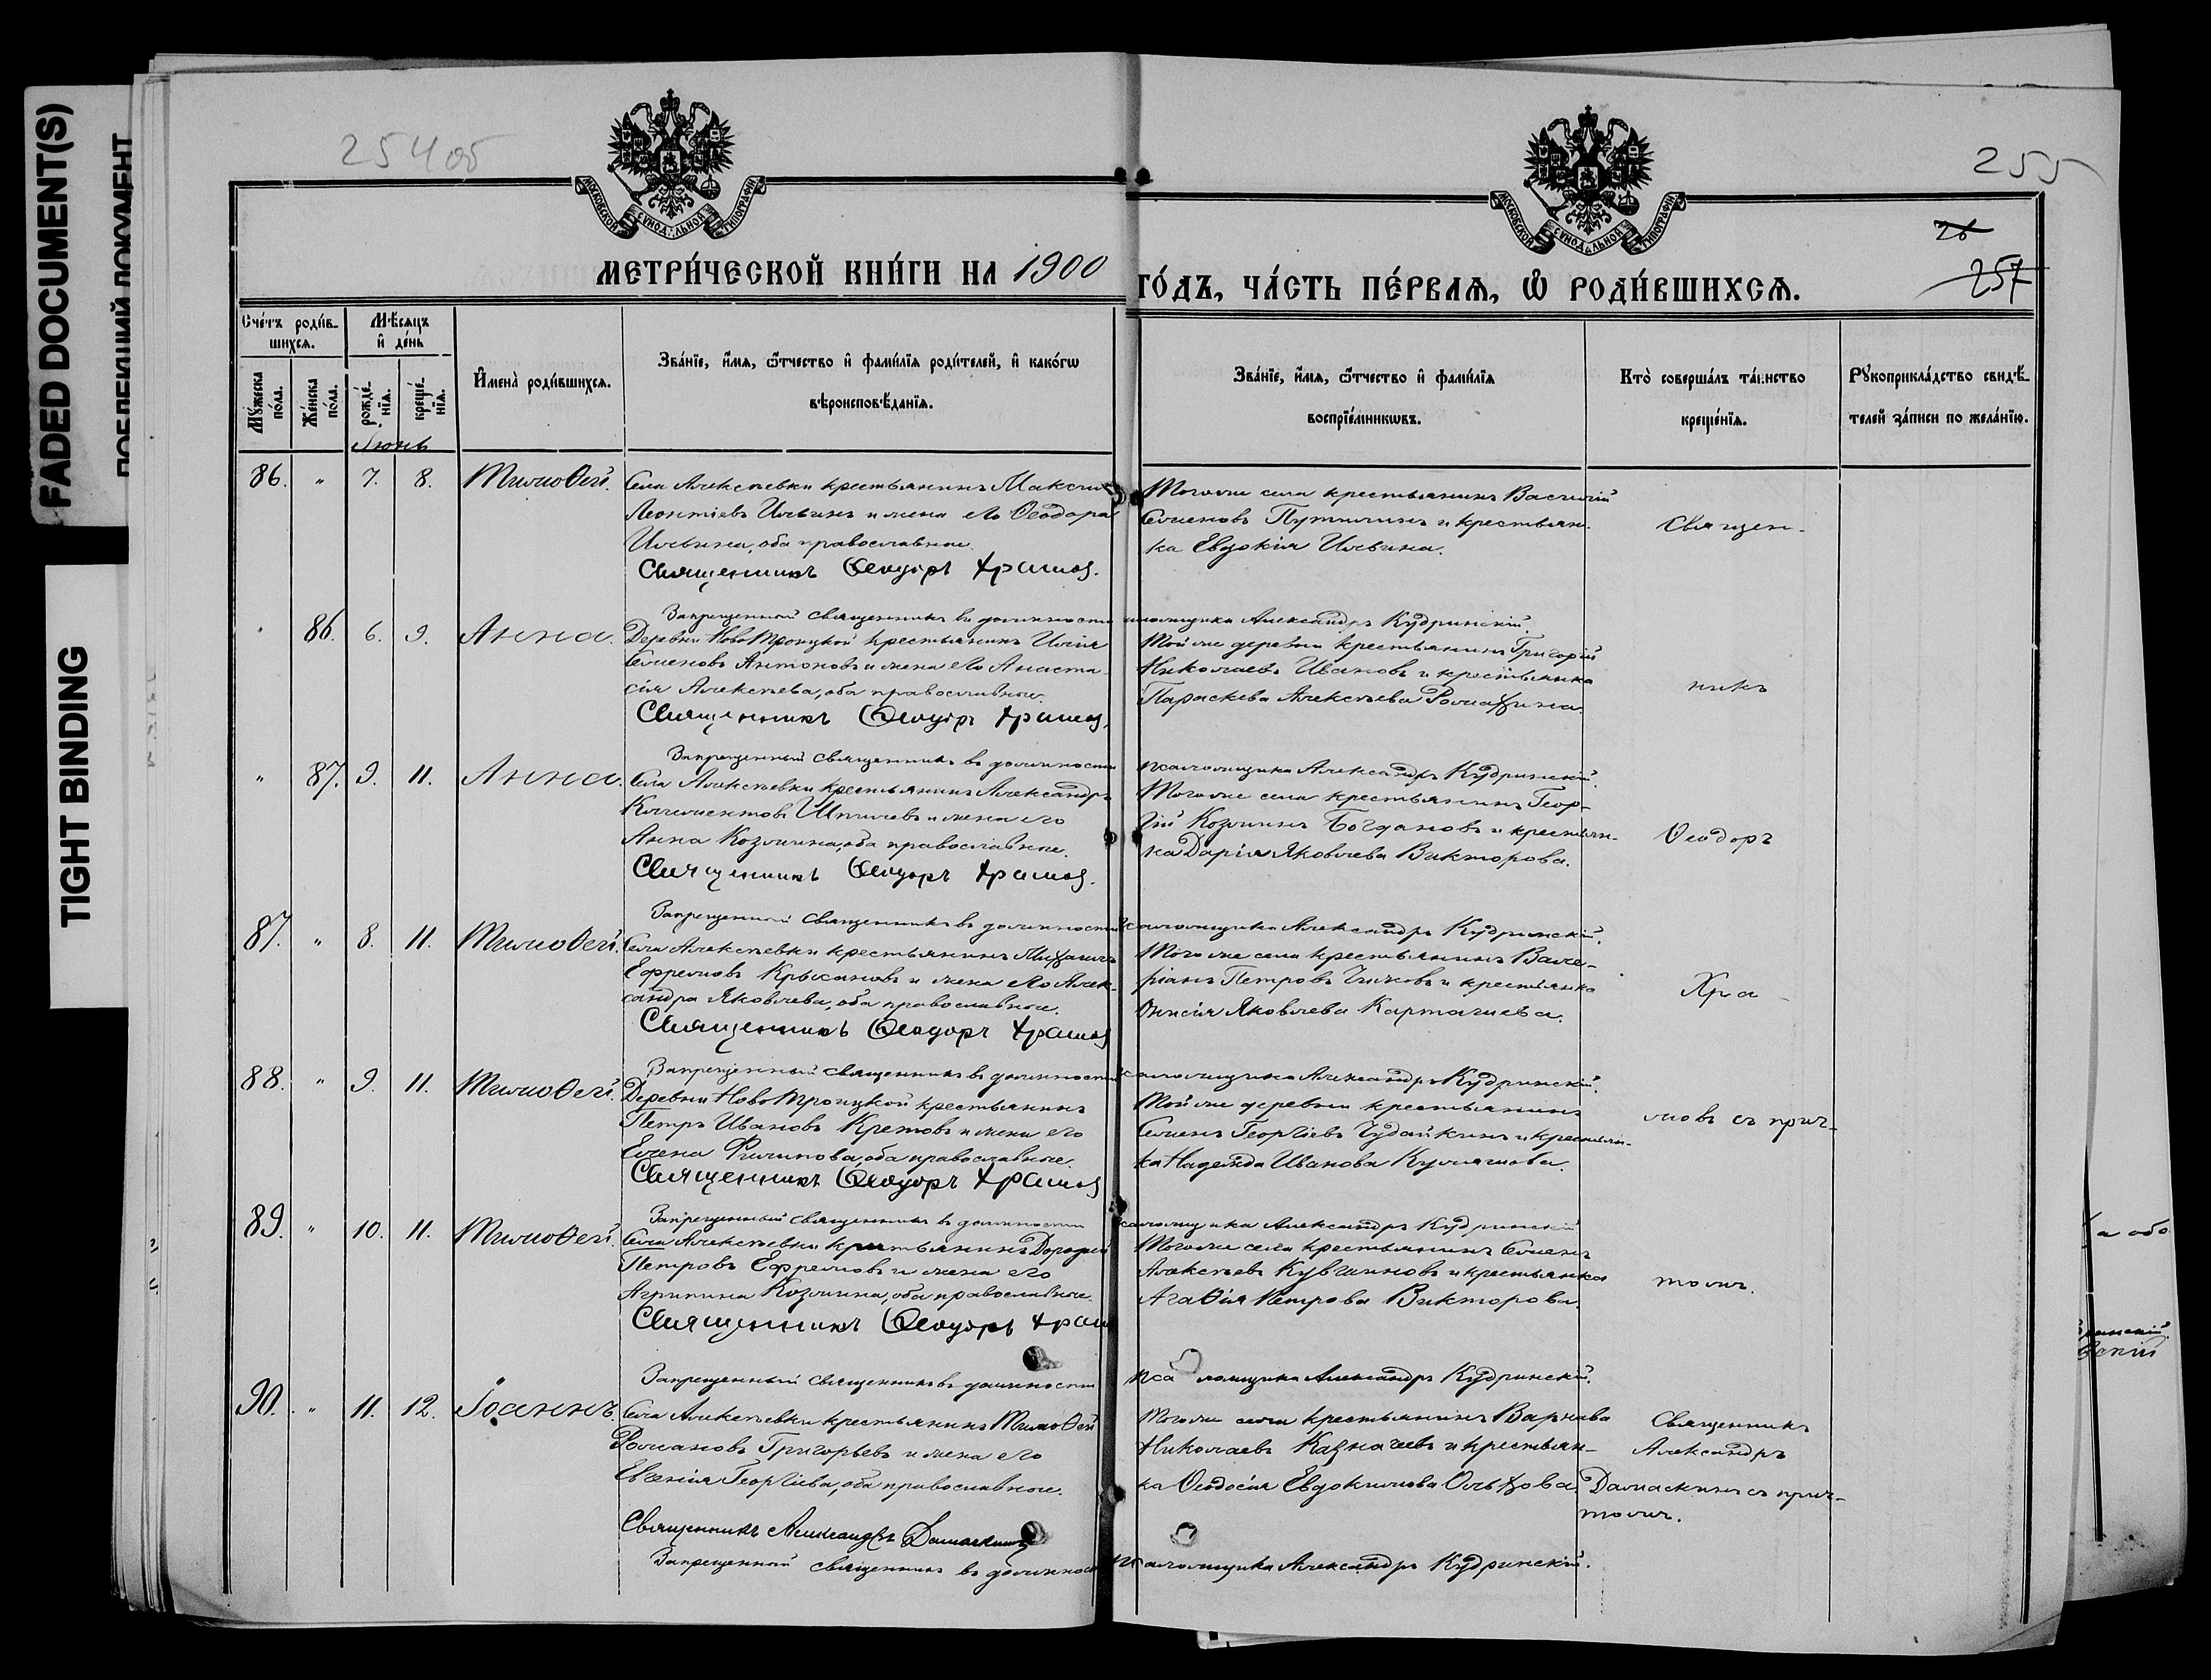 FADED DOCUMENT(S)
TIGHT BINDING
254об
255
26
257
МОСКОВСКОЙ СѴНОДАЛЬНОЙ ТИПОГРАФІИ
МОСКОВСКОЙ СѴНОДАЛЬНОЙ ТИПОГРАФІИ
МЕТРИ́ЧЕСКОЙ КНИ́ГИ НА 1900 ГО́ДЪ, ЧА́СТЬ ПЕ́РВАѦ, Ѡ РОДИ́ВШИХСѦ.
Сче́тъ роди́в-
шихсѧ.
Мѣ́сѧцъ
и҆ де́нь
Мꙋ́жеска
по́ла.
Же́нска
по́ла.
рожде́-
нїѧ.
креще́-
нїѧ.
И҆мена̀ роди́вшихсѧ.
Зва́нїе, и҆́мѧ, ѻ҆́тчество и҆ фами́лїѧ роди́телей, и҆ како́гѡ
вѣроисповѣ́данїѧ.
Зва́нїе, и҆́мѧ, ѻ҆́тчество и҆ фами́лїѧ
воспрїе́мникѡвъ.
Кто̀ соверша́лъ та́инство
креще́нїѧ.
Рꙋкоприкла́дство свидѣ́-
телей за́писи по жела́нїю.
Іюнь
86. " 7. 8. Тимоѳей.
Села Алексѣевки крестьянинъ Максимъ
Леонтіевъ Ильинъ и жена его Ѳеодора
Ильина, оба православные.
Священникъ Ѳеодоръ Храмовъ
Тогоже села крестьянинъ Василій
Семеновъ Путилинъ и крестьян-
ка Евдокія Ильина.
Священ-
Запрещенный священникъ въ должности псаломщика Александръ Кудринскій.
" 86. 6. 9. Анна.
Деревни НовоТроицкой крестьянинъ Илія
Семеновъ Антоновъ и жена его Анаста-
сія Алексѣева, оба православные.
Священникъ Ѳеодоръ Храмовъ
Тойже деревни крестьянинъ Григорій
Николаевъ Ивановъ и крестьянка
Параскева Алексѣева
никъ
Запрещенный священникъ въ должности псаломщика Александръ Кудринскій.
" 87. 9. 11. Анна.
Села Алексѣевки крестьянинъ Александръ
Климентовъ Шпилевъ и жена его
Анна Козмина, оба православные.
Священникъ Ѳеодоръ Храмовъ
Тогоже села крестьянинъ Геор-
гій Козминъ Богдановъ и крестьян-
ка Дарія Яковлева Викторова.
Ѳеодоръ
Запрещенный священникъ въ должности псаломщика Александръ Кудринскій.
87. " 8. 11. Тимоѳей.
Села Алексѣевки крестьянинъ Михаилъ
Ефремовъ Крысановъ и жена его Алек-
сандра Яковлева, оба православные.
Священникъ Ѳеодоръ Храмовъ
Тогоже села крестьянинъ Вале-
ріанъ Петровъ и крестьянка
Яковлева Карташева.
Хра-
Запрещенный священникъ въ должности псаломщика Александръ Кудринскій.
88. " 9. 11. Тимоѳей.
Деревни НовоТроицкой крестьянинъ
Петръ Ивановъ Кретовъ и жена его
Елена Филипова, оба православные.
Священникъ Ѳеодоръ Храмовъ
Тойже деревни крестьянинъ
Семенъ Георгіевъ Чудайкинъ и крестьян-
ка Надежда Иванова
мовъ съ прич-
Запрещенный священникъ въ должности псаломщика Александръ Кудринскій
89. " 10. 11. Тимоѳей.
Села Алексѣевки крестьянинъ Дорофей
Петровъ Ефремовъ и жена его
Агрипина Козмина, оба православные.
Священникъ Ѳеодоръ Храм
Тогоже села крестьянинъ Семенъ
Алексѣевъ Кувшиновъ и крестьянка
Агаѳія Петрова Викторова.
томъ.
Запрещенный священникъ въ должности псаломщика Александръ Кудринскій.
90. " 11. 12. Іоаннъ.
Села Алексѣевки крестьянинъ Тимоѳей
Романовъ Григорьевъ и жена его
Евгенія Георгіева, оба православные.
Тогоже села крестьянинъ Варнава
Николаевъ Казначеевъ и крестьян-
ка Ѳеодосія Евдокимова Ольхова.
Священникъ
Александръ
Дамаскинъ съ прич-
томъ.
Священникъ Александръ Дамаскинъ
Запрещенный священникъ въ должности псаломщика Александръ Кудринскій.